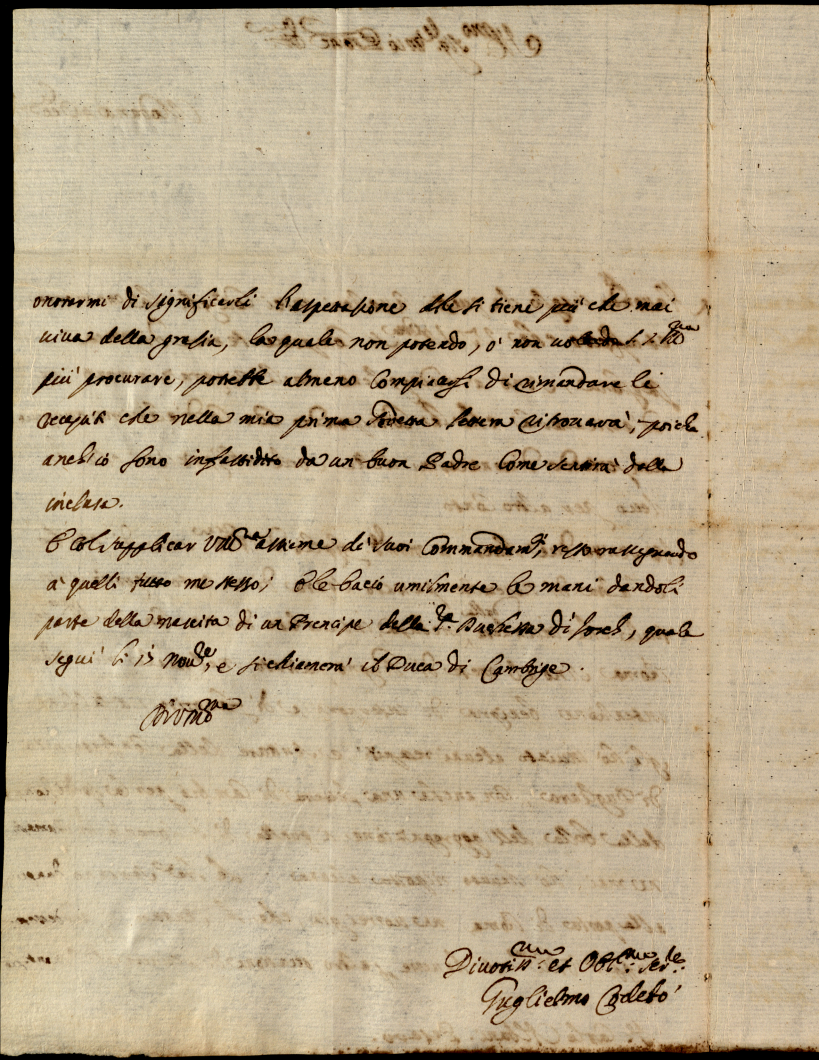 onorarmi di significarli l'aspettasione che si tiene più che mai
viva della grasia, la quale non potendo, ò non volendo V. S. Ill.ma
più procurare, potrebbe almeno compiacersi di rimandare li
recapiti che nella mia prima lettera ritrovarà, poiche
anch'io sono infastidito da un buon Padre come sentirà dalla
inclusa.
E col supplicar assieme de' suoi Commandam.ti, resto rassegnando
a' quelli tutto me stesso; e le bacio umilmente le mani dandoli
parte della nascita di un Prencipe della Duchessa di Jorch, quale
seguì li 17 Nov.re, e si chiamerà il Duca di Cambrige.
Divotiss.mo et Obl.mo Ser.le
Guglielmo